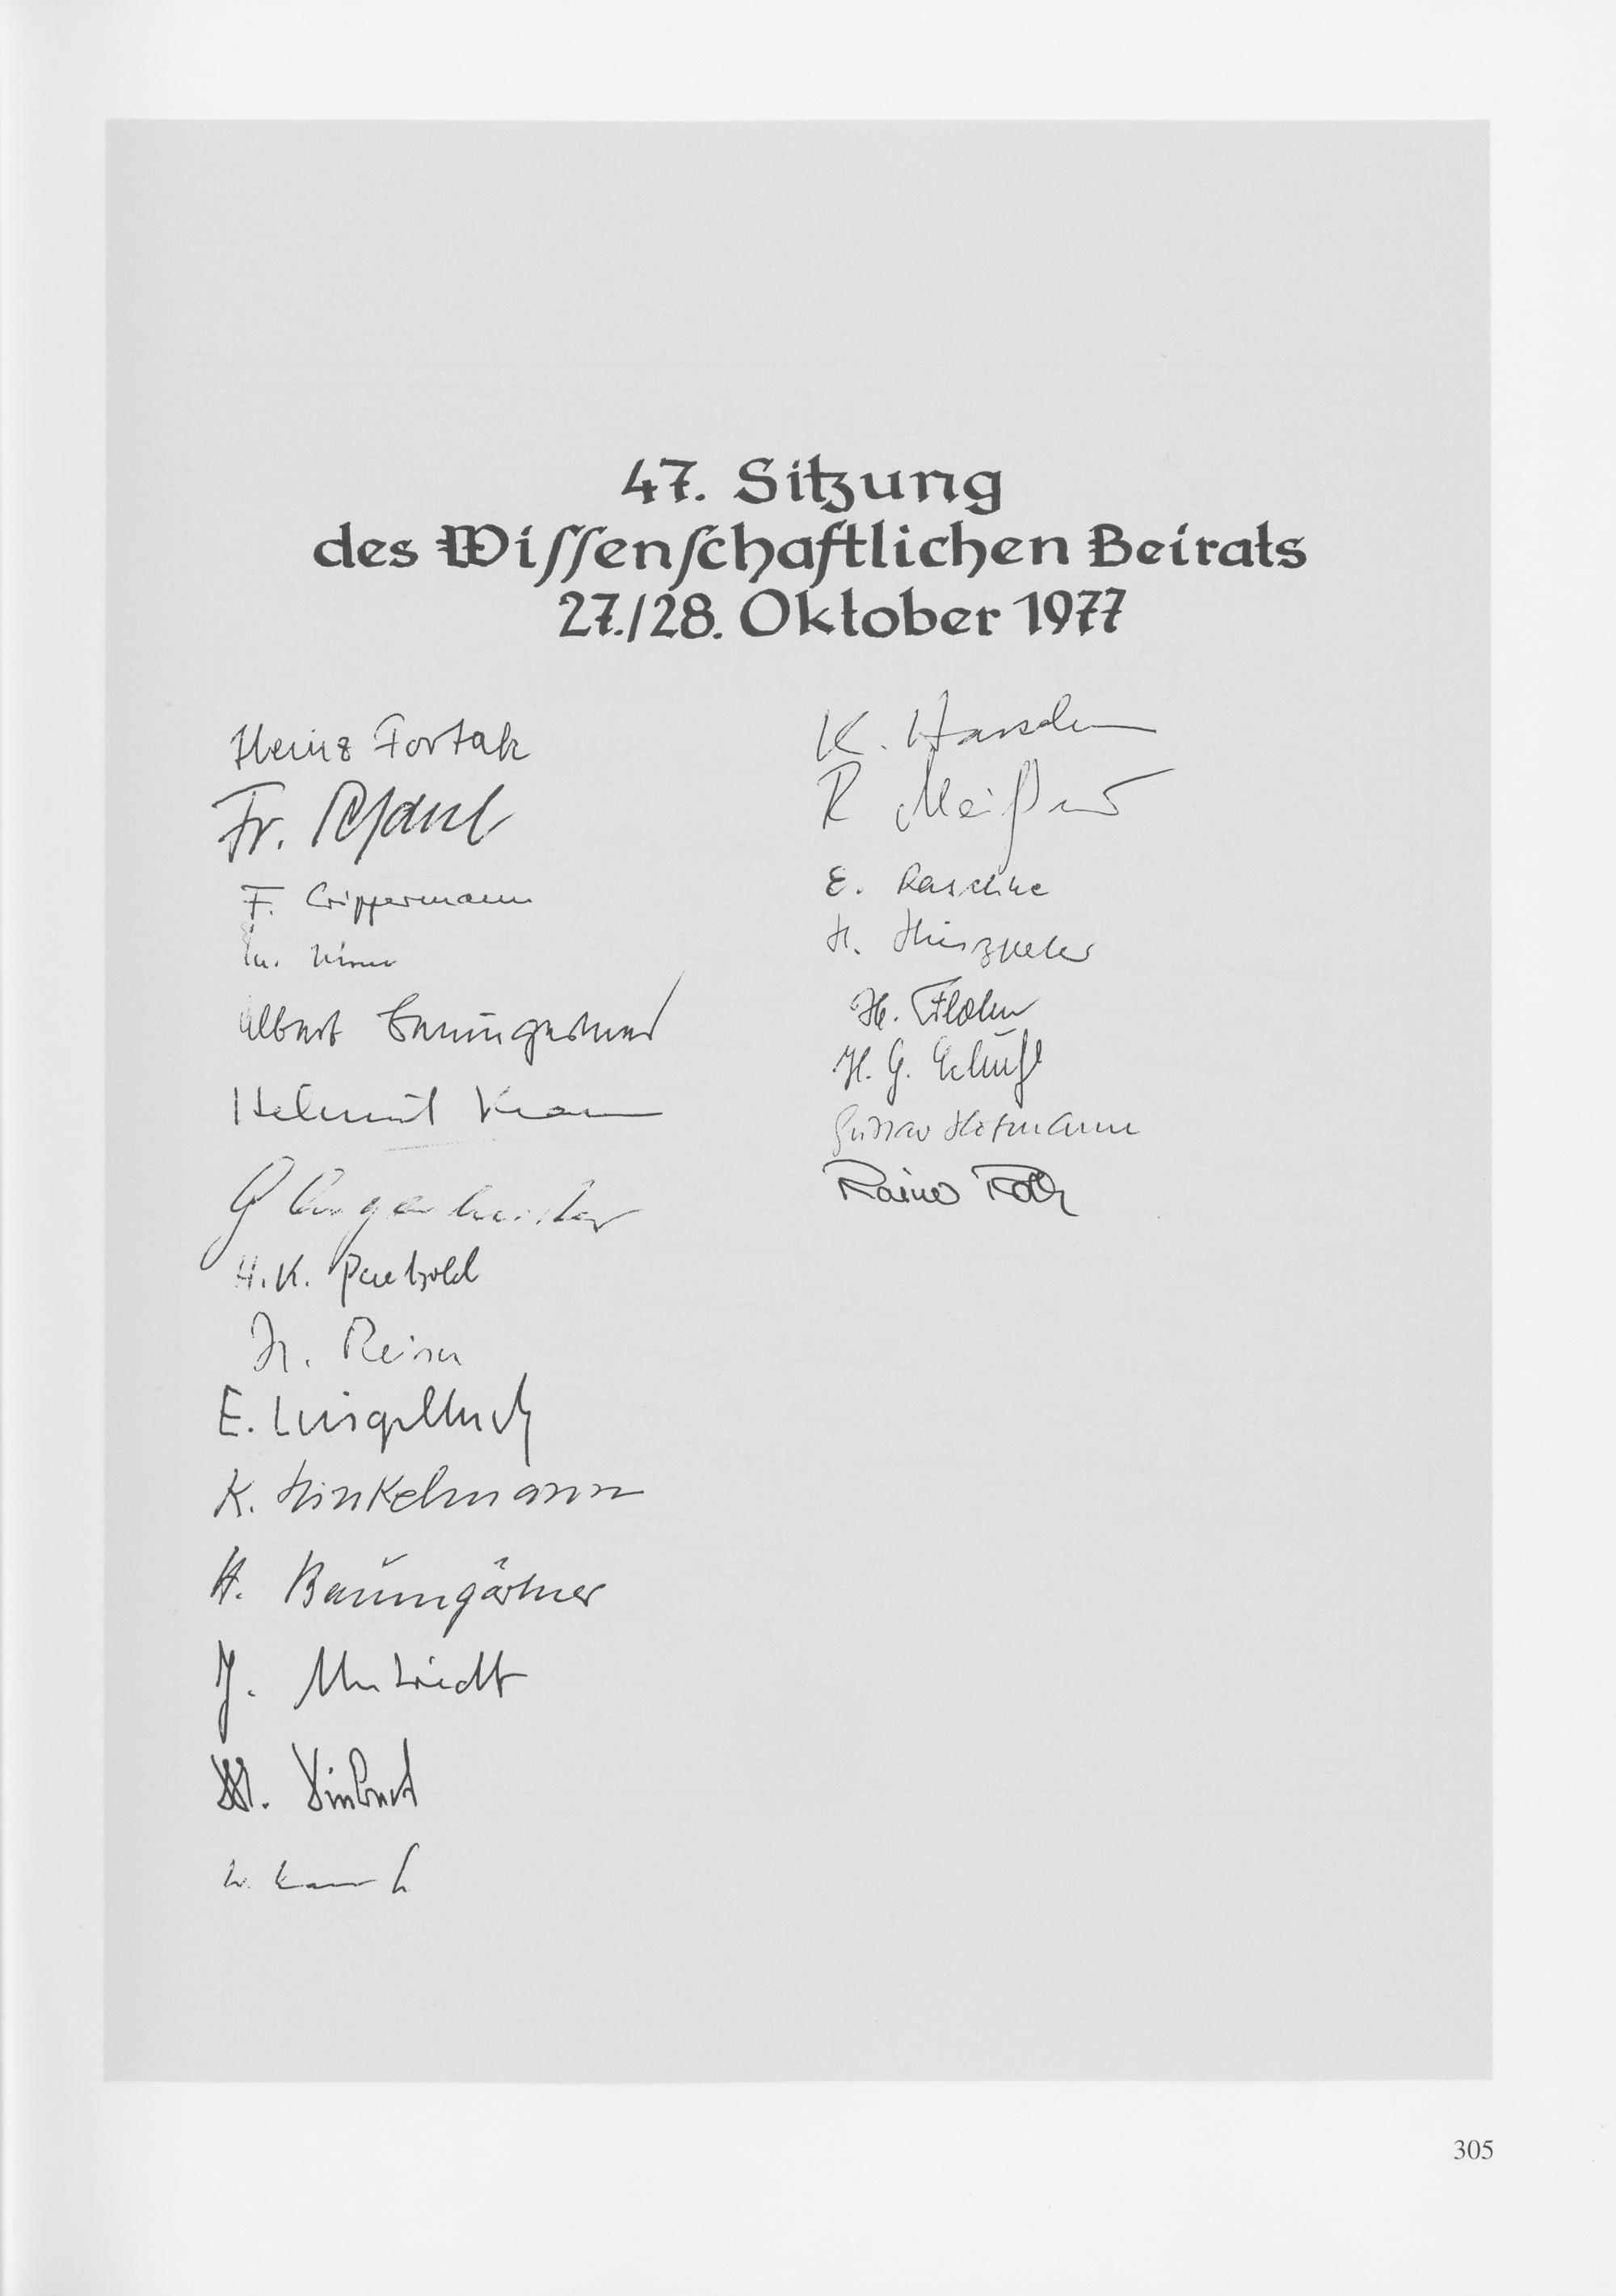 47. Sitzung
des Wiſſenſchaftlichen Beirats
27./28. Oktober 1977
Heinz Fortak
Fr.
F.
Albert Baumgartner
Helmut
G
H. K. Paetzold
H. Reiser
E. Lingelbach
K. Hinkelmann
H. Baumgärtner
J.
W.
K.
R Meißner
E. Raschke
H. Hinzpeter
H. Flohn
H. G.
Gustav Hofmann
Rainer Roth
305